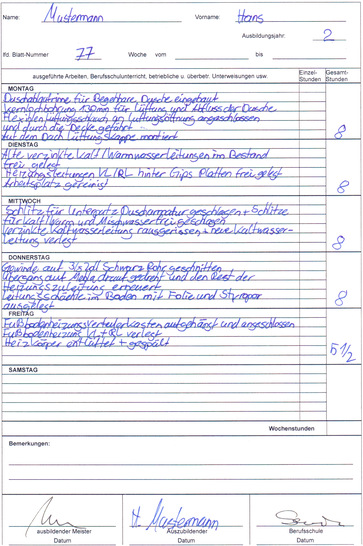 Name: Mustermann Vorname: Hans
Ausbildungsjahr: 2
lfd. Blatt-Nummer 77 Woche vom bis
ausgeführte Arbeiten, Berufsschulunterricht, betriebliche u. überbetr. Unterweisungen usw. Einzel-Stunden Gesamt-Stunden
MONTAG
Duschablaufrinne für Begehbare Dusche eingebaut
Kernlochbohrung 130mm für Lüftung und Abfluss der Dusche
Flexiblen Lüftungsschlauch an Lüftungsöffnung angeschlossen
und durch die Decke geführt
Auf dem Dach Lüftungskappe montiert 8
DIENSTAG
Alte verzinkte Kalt/Warmwasserleitungen im Bestand
frei gelegt
Heizungsleitungen VL/RL hinter Gips Platten frei gelegt
Arbeitsplatz gereinigt 8
MITTWOCH
Schlitz für Unterputz Duscharmatur geschlagen + Schlitze
für Kalt/Warm und Mischwasser frei geschlagen
Verzinkte Kaltwasserleitung rausgerissen + neue Kaltwasser-
leitung verlegt 8
DONNERSTAG
Gewinde auf 3/8 Zoll Schwarz Rohr geschnitten
Übergang auf drauf gedreht und den Rest der
Heizungszuleitung erneuert
Leitungsschächte im Boden mit Folie und Styropor
ausgelegt 8
FREITAG
Fußbodenheizungsverteilerkasten aufgehängt und angeschlossen
Fußbodenheizung VL + RL verlegt
Heizkörper entlüftet + gespült 5 1/2
SAMSTAG
Wochenstunden
Bemerkungen:
H. Mustermann
ausbildender Meister Auszubildender Berufsschule
Datum Datum Datum